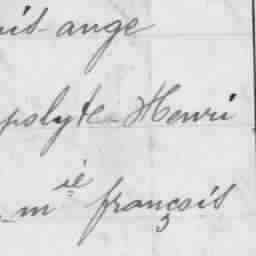 is-ange
polyte-Henri
m ié françois